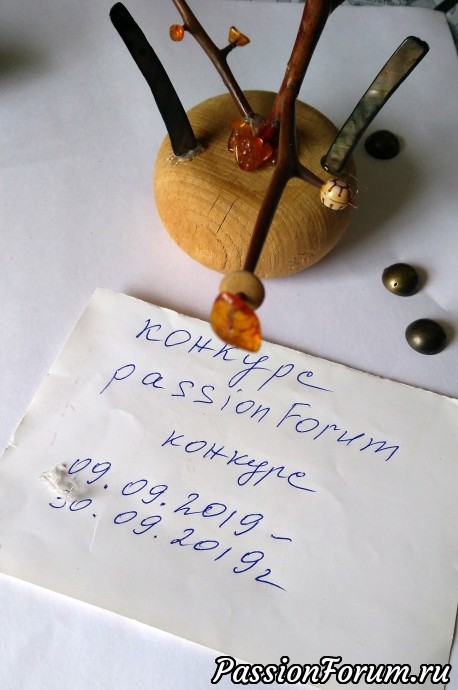 конкурс
passionForum
конкурс
09.09.2019-
30.09.2019г
PassionForum.ru